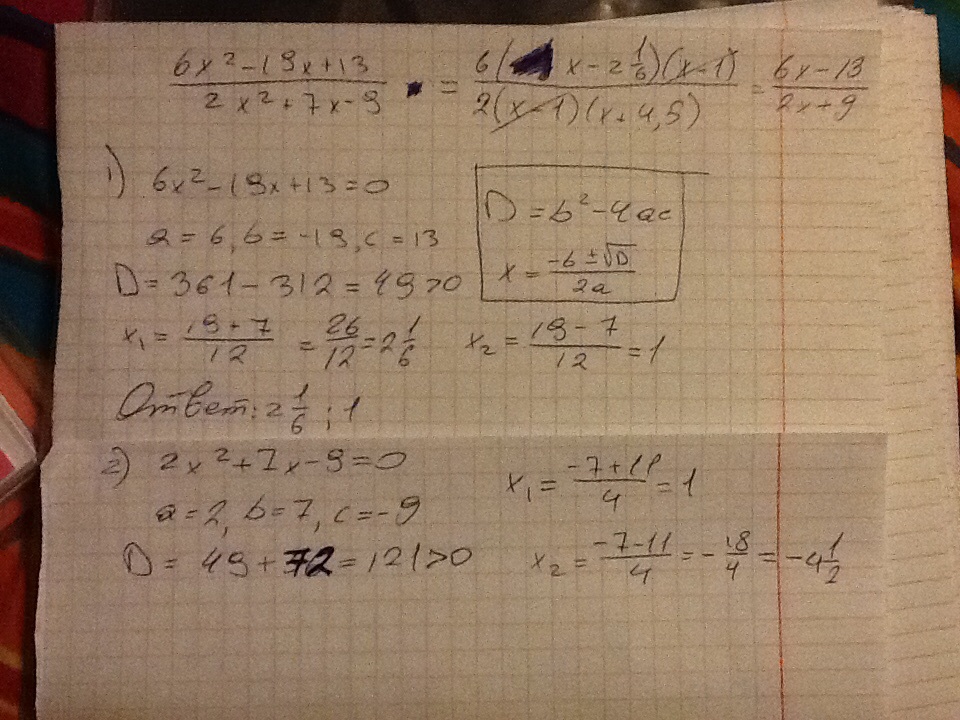 (6x² - 19x + 13)/(2x² + 7x - 9) = 6(x - 2 1/6)(x - 1)/2(x - 1)(x + 4,5) = (6x - 13)/(2x + 9)
1) 6x² - 19x + 13 = 0
a = 6, b = -19, c = 13
D = 361 - 312 = 49 > 0
D = b² - 4ac
x = (-b ± √D)/2a
x₁ = (19 + 7)/12 = 26/12 = 2 1/6
x₂ = (19 - 7)/12 = 1
Ответ: 2 1/6 ; 1
2) 2x² + 7x - 9 = 0
a = 2, b = 7, c = -9
D = 49 + 72 = 121 > 0
x₁ = (-7 + 11)/4 = 1
x₂ = (-7 - 11)/4 = -18/4 = -4 1/2